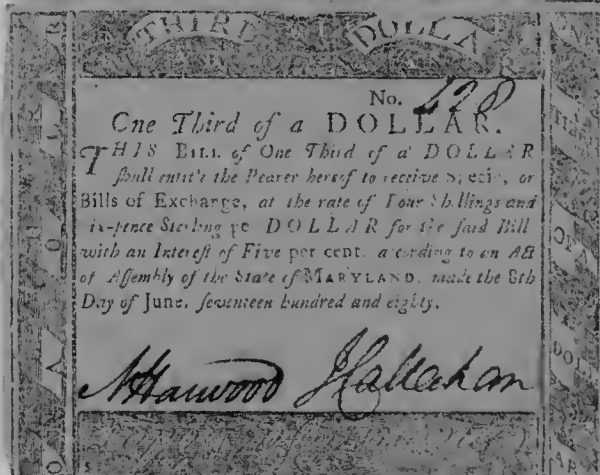 THIRD DOLLAR
No. 228
One Third of a DOLLAR.
THIS BILL of One Third of a DOLLAR
ſhall entitle the Bearer hereof to receive Specie, or
Bills of Exchange, at the rate of Four Shillings and
ſix-pence Sterling per DOLLAR for the ſaid Bill
with an Intereſt of Five per cent. according to an Act
of Aſſembly of the State of MARYLAND, made the 8th
Day of June, ſeventeen hundred and eighty.
N Harwood J Callahan